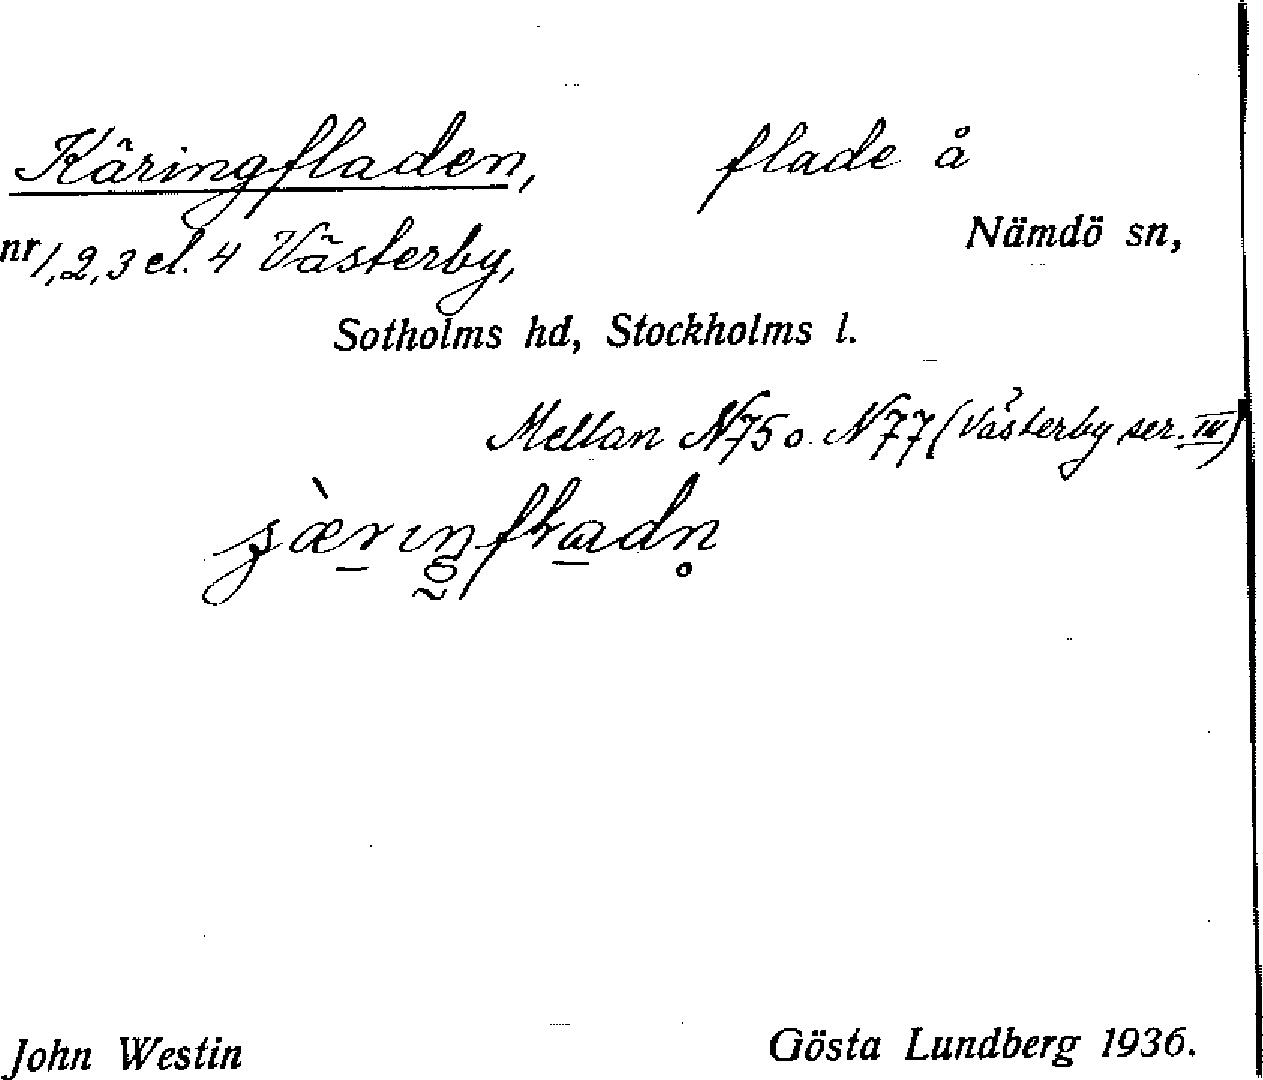 Käringfladen, flade å
nr 1, 2, 3 el. 4 Västerby, Nämdö sn,
Sotholms hd, Stockholms l.
Mellan N75 o. N77 (Västerby ser. III)
John Westin Gösta Lundberg 1936.